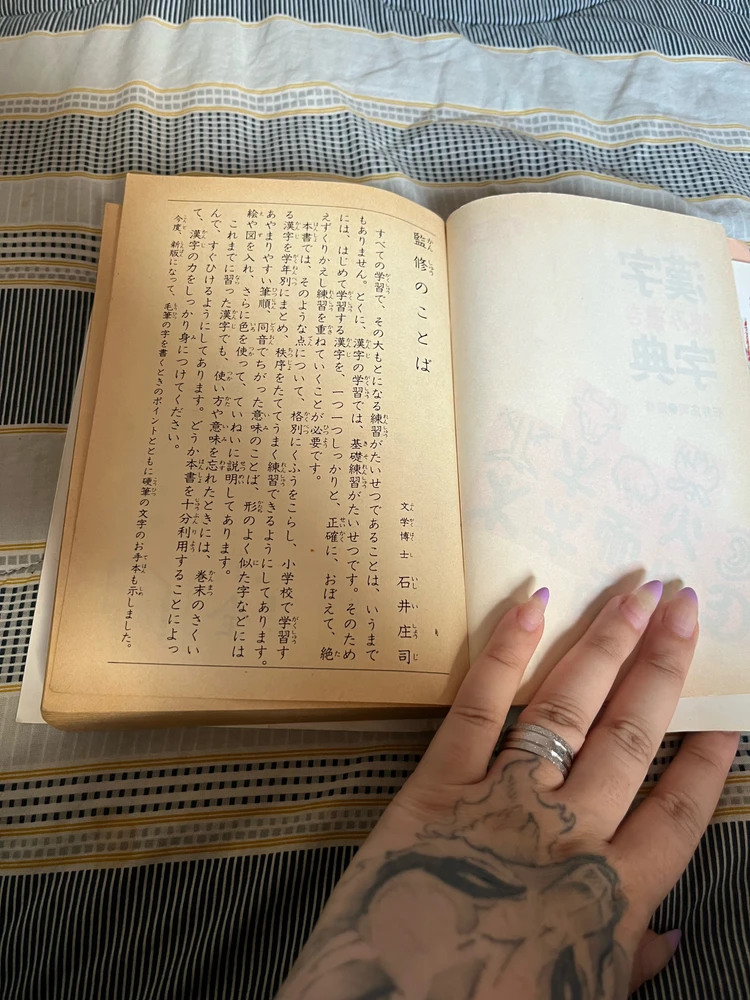 漢字
字典
監修のことば
文学博士 石井庄司
すべての学習で、その大もとになる練習がたいせつであることは、いうまで
もありません。とくに、漢字の学習では、基礎練習がたいせつです。そのため
には、はじめて学習する漢字を、一つ一つしっかりと、正確に、おぼえて、絶
えずくりかえし練習を重ねていくことが必要です。
本書では、そのような点について、格別にくふうをこらし、小学校で学習す
る漢字を学年別にまとめ、秩序をたててうまく練習できるようにしてあります。
あやまりやすい筆順、同音でちがった意味のことば、形のよく似た字などには
絵や図を入れ、さらに色を使って、ていねいに説明してあります。
これまでに習った漢字でも、使い方や意味を忘れたときには、巻末のさくい
んで、すぐひけるようにしてあります。どうか本書を十分利用することによっ
て、漢字の力をしっかり身につけてください。
今度、新版になって、毛筆の字を書くときのポイントとともに硬筆の文字のお手本も示しました。